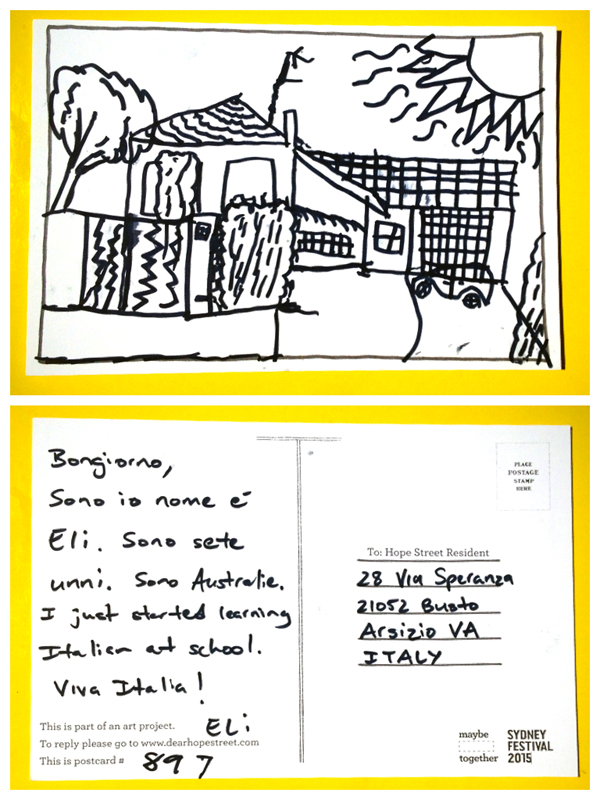 Bongiorno,
Sono io nome é
Eli. Sono sete
unni. Sono Australie.
I just started learning
Italian at school.
Viva Italia!
Eli
This is part of an art project.
To reply please go to www.dearhopestreet.com
This is postcard # 897
PLACE
POSTAGE
STAMP
HERE
To: Hope Street Resident
28 Via Speranza
21052 Busto
Arsizio VA
ITALY
maybe
together
SYDNEY
FESTIVAL
2015